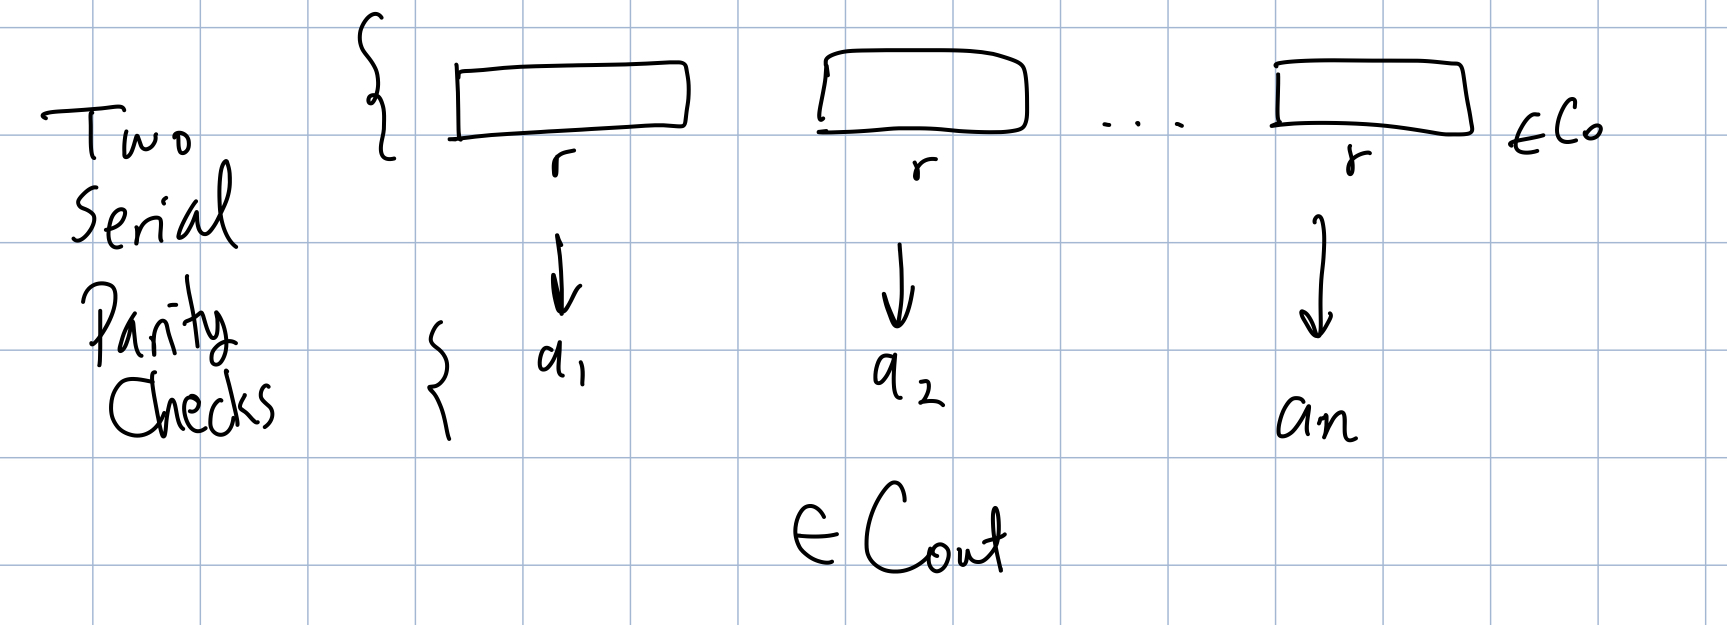 Two
Serial
Parity
Checks
r r ... r ∈ C₀
a₁ a₂ an
∈ Cout